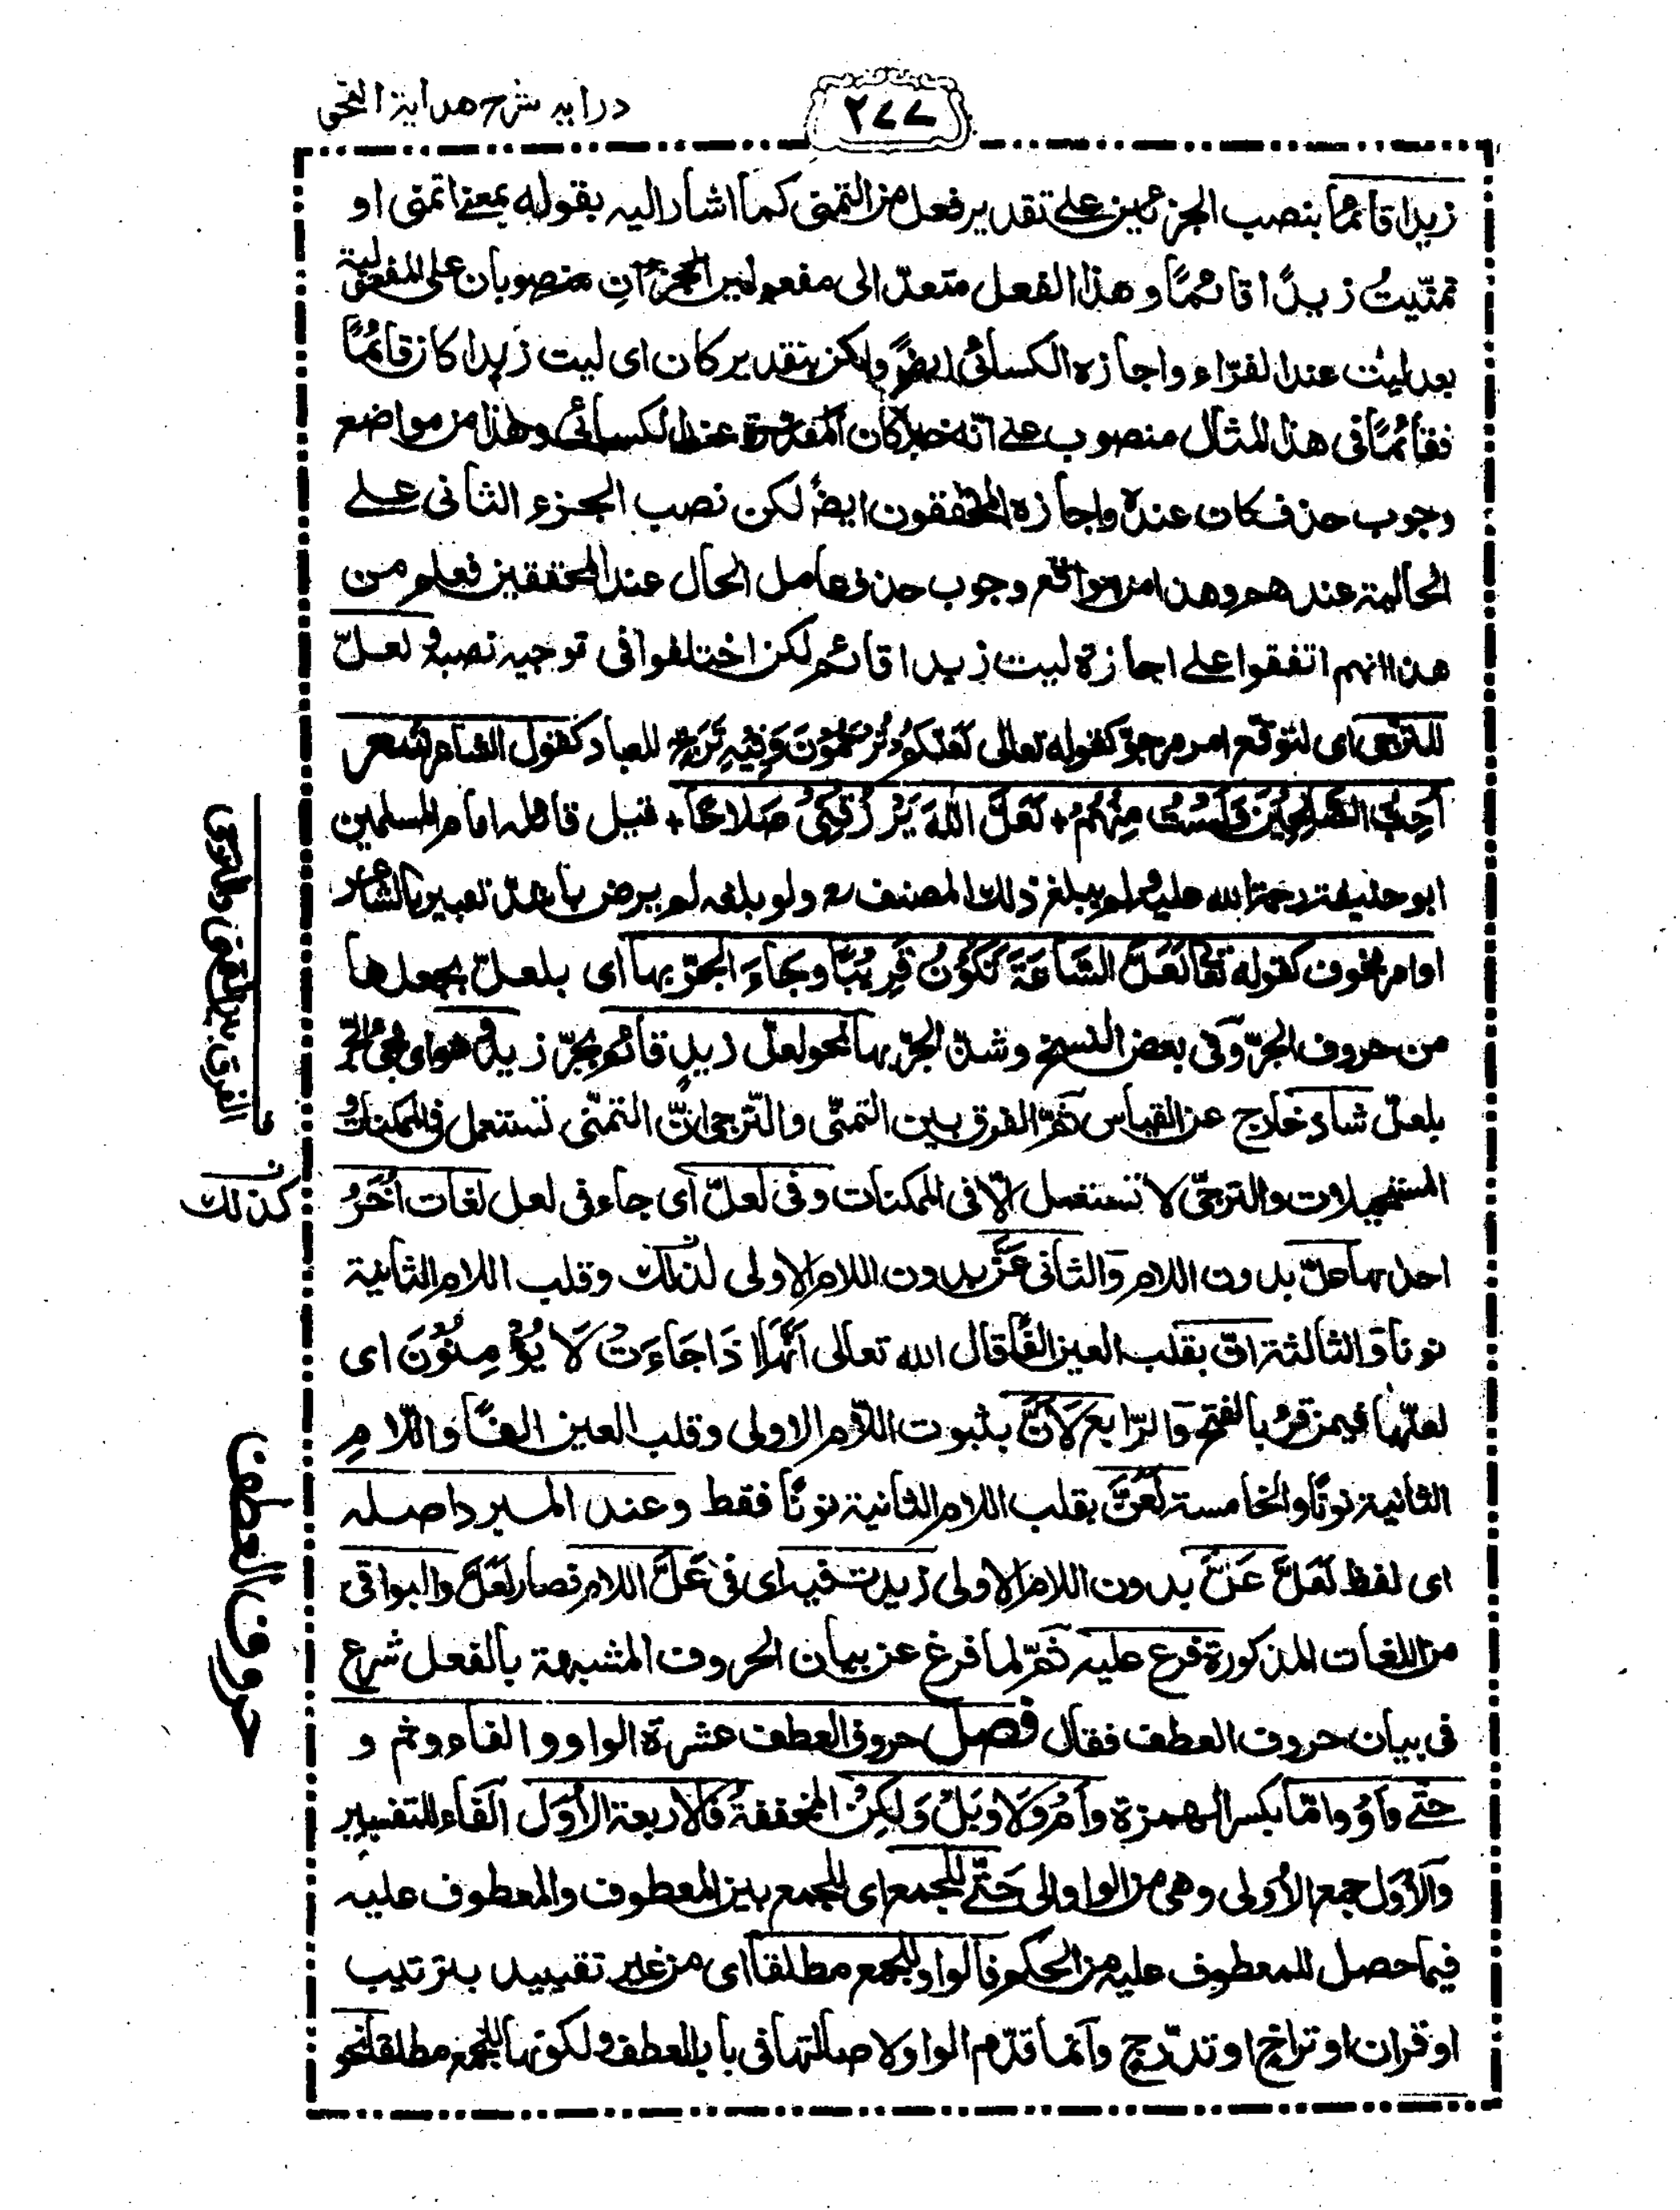 درایه شرح هدایة النحو
۲۷۷
زیدا قائما بنصب الجزئین علے تقدیر فعل من التمنی کما اشار الیه بقوله بمعنے اتمنی او
تمنّیتُ زیدًا قائمًا و هذا الفعل متعدّ الی مفعولین الجزءان منصوبان علی المفعولیة
بعد لیت عند الفرّاء و اجازه الکسائی ایضًا ولکن بتقدیر کان ای لیت زیدا کان قائمًا
فقائمًا فی هذا المثال منصوب علے انّه خبر کان المقدرة عند الکسائی و هذا من مواضع
وجوب حذف کان عندهٗ واجازه المحققون ایضًا لکن نصب الجزء الثانی علے
الحالیة عندهم وهذا من مواقع وجوب حذف عامل الحال عند المحققین فعلم من
هذا انهم اتفقوا علے اجازة لیت زیدا قائم لکن اختلفوا فی توجیه نصبه و لعلّ
للترجی ای لتوقع امر مرجو کقوله تعالی لَعَلَّکُمْ تُرْحَمُوْنَ وَفِیْهِ تَرَجٍّ للعباد کقول الشاعر شعر
اُحِبُّ الصَّالِحِیْنَ وَلَسْتُ مِنْهُمْ + لَعَلَّ اللّٰهَ یَرْزُقُنِیْ صَلَاحًا + قیل قائله امام المسلمین
ابوحنیفة رحمة الله علیه ولم یبلغ ذلک المصنف ره ولو بلغه لم یرض بان تعبیر بالشاعر
او امر مخوف کقوله تعالی لَعَلَّ السَّاعَةَ تَکُوْنُ قَرِیْبًا وجَاءَ الجرّ بها ای بلعلّ بجعلها
من حروف الجرّ وفی بعض النسخ وشذّ الجرّ بها نحو لعلّ زیدٍ قائم بجرّ زید و هو ای مجئ الجرّ
بلعلّ شاذ خارج عن القیاس ثمّ الفرق بین التمنّی والتّرجی انّ التمنّی تستعمل فی الممکنات و
المستحیلات والترجیّ لا تستعمل الّا فی الممکنات وفی لعلّ ای جاء فی لعل لغات اُخَرُ
احدٰیها علّ بدون اللام والثانی عَنَّ بدون اللام الاولی کذلک وقلب اللام الثانیة
نونا والثالثة انّ بقلب العین الفًا قال الله تعالی اَنَّهَا اِذَا جَاءَتْ لَا یُؤْمِنُوْنَ ای
لعلّها فیمن قرء بالفتح والرّابع لَاَنَّ بثبوت اللّام الاولی وقلب العین الفًا واللّام
الثانیة نونًا والخامسة لَعَنَّ بقلب اللام الثانیة نونًا فقط وعند المبرد اصله
ای لفظ لَعَلَّ عَلَّ بدون اللام الاولی زیدت فیه ای فی عَلَّ اللام فصار لَعَلَّ والبواقی
من اللغات المذکورة فرع علیه ثمّ لما فرغ عن بیان الحروف المشبهة بالفعل شرع
فی بیان حروف العطف فقال فصل حروف العطف عشرة الواو والفاء وثم و
حتّے واَوْ وامّا بکسر الهمزة واَمْ وَلَا وبَلْ وَلکِنْ المخففة فالاربعة الاُوَل الفاء للتفسیر
والاُوَل جمع الاُولی وهی من الواو الی حَتّٰے للجمع ای للجمع بین المعطوف والمعطوف علیه
فیما حصل للمعطوف علیه من الحکم فالواو للجمع مطلقا ای من غیر تقیید بترتیب
او قران او تراخ او تدرّج وانما قدّم الواو لاصالتها فی باب العطف ولکونها للجمع مطلقا نحو
کذلک
حروف العطف